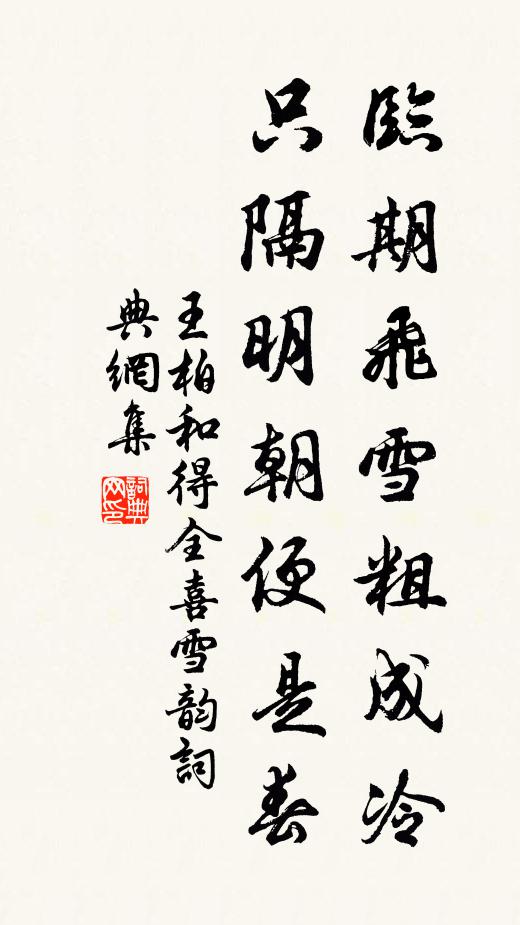 臨期飛雪粗成冷
只隔明朝便是春
王柏和得全喜雪韵詞
典網集
詞典網印